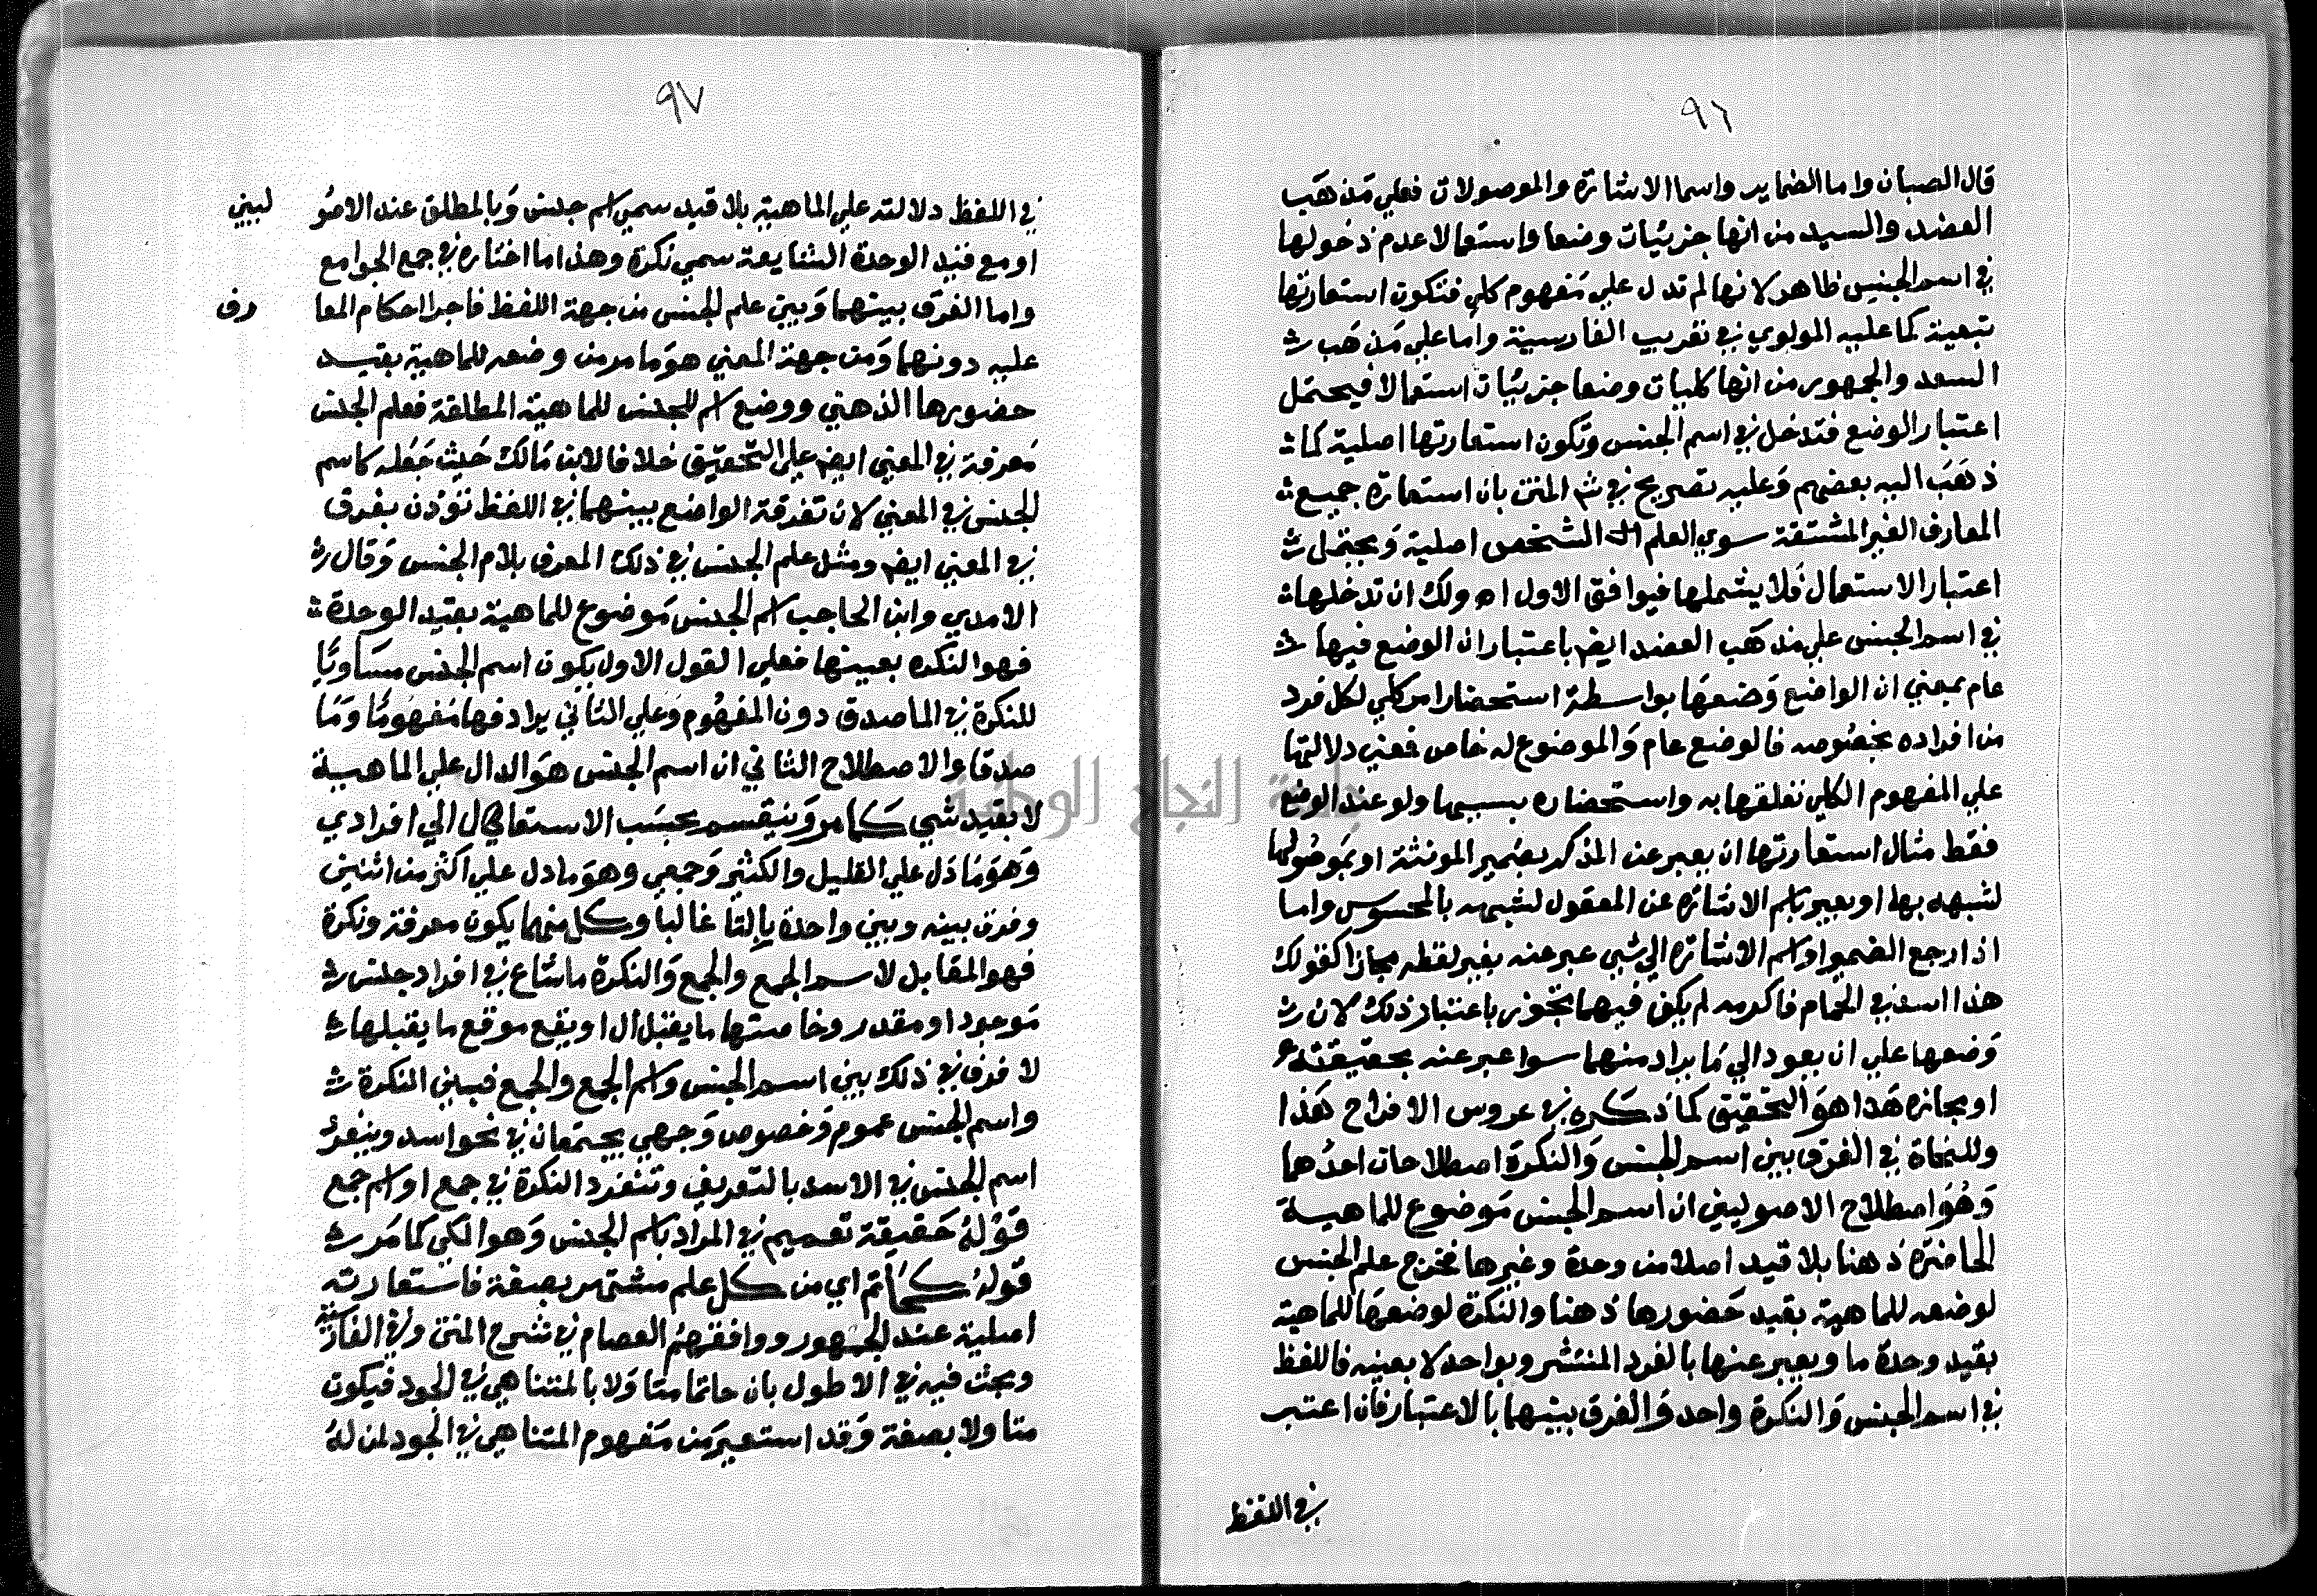 ٩٦
قال الصبان واما الضماير واسما الاشارة والموصولات فعلي مذهب
العضد والسيد من انها جزئيات وضعا واستعمالا عدم دخولها
في اسم الجنس ظاهر لانها لم تدل علي مفهوم كلي فتكون استعارتها
تبعية كما عليه المولوي في تعريب الفارسية واما علي مذهب
السعد والجمهور من انها كليات وضعا جزئيات استعمالا فيحتمل
اعتبار الوضع فتدخل في اسم الجنس وتكون استعارتها اصلية كما
ذهب اليه بعضهم وعليه تصريح في شم المتن بان استعارة جميع
المعارف الغير المشتقة سوي العلم الشخص اصلية ويحتمل
اعتبار الاستعمال فلا يشملها فيوافق الاول اه ولك ان تدخلها
في اسم الجنس علي مذهب العضد ايض باعتبار ان الوضع فيها
عام بمعني ان الواضع وضعها بواسطة استحضار امر كلي لكل فرد
من افراده بخصوصه فالوضع عام والموضوع له خاص فمعني دلالتها
علي المفهوم الكلي تعلقها به واستحضاره بسببها ولو عند الوضع
فقط مثال استعارتها ان يعبر عن المذكر بضمير المونثة او بموصولها
لشبهه بها او يعبر باسم الاشارة عن المعقول لشبهه بالمحسوس واما
اذا رجع الضمير او اسم الاشارة الي شي عبر عنه بغير لفظه مجازا كقولك
هذا اسد في الحمام فاكرمه لم يكن فيهما تجوز باعتبار ذلك لان
وضعها علي ان يعود الي ما يراد منهما سوا عبر عنه بحقيقته
او مجازه هذا هو التحقيق كما ذكره في عروس الافراح هذا
وللنحاة في الفرق بين اسم الجنس والنكرة اصطلاحان احدهما
وهو اصطلاح الاصوليين ان اسم الجنس موضوع للماهية
الحاضرة ذهنا بلا قيد اصلا من وحدة وغيرها فخرج علم الجنس
لوضعه للماهية بقيد حضورها ذهنا والنكرة لوضعها للماهية
بقيد وحدة ما ويعبر عنها بالفرد المنتشر وبواحد لا بعينه فاللفظ
في اسم الجنس والنكرة واحد والفرق بينهما بالاعتبار فان اعتبر
في اللفظ
٩٧
في اللفظ دلالته علي الماهية بلا قيد سمي اسم جنس وبالمطلق عند الاصو ليين
او مع قيد الوحدة الشايعة سمي نكرة وهذا ما اختاره في جمع الجوامع
واما الفرق بينهما وبين علم الجنس من جهة اللفظ فاجرا احكام المعا رف
عليه دونهما ومن جهة المعني هو ما مر من وضعه للماهية بقيد
حضورها الذهني ووضع اسم الجنس للماهية المطلقة فعلم الجنس
معرفة في المعني ايض علي التحقيق خلافا لابن مالك حيث جعله كاسم
الجنس في المعني لان تفرقة الواضع بينهما في اللفظ تؤذن بفرق
في المعني ايض ومثل علم الجنس في ذلك المعرف بلام الجنس وقال
الامدي وابن الحاجب اسم الجنس موضوع للماهية بقيد الوحدة
فهو النكرة بعينها فعلي القول الاول يكون اسم الجنس مساويا
للنكرة في الماصدق دون المفهوم وعلي الثاني يرادفها مفهوما وما
صدقا والاصطلاح الثاني ان اسم الجنس هو الدال علي الماهية
لا بقيد شي كما مر وينقسم بحسب الاستعمال الي افرادي
وهو ما دل علي القليل والكثير وجمعي وهو ما دل علي اكثر من اثنين
وفرق بينه وبين واحدة بالتا غالبا وكل منهما يكون معرفة ونكرة
فهو المقابل لاسم الجمع والجمع والنكرة ما شاع في افراد جنس
موجود او مقدر وخاصتها ما يقبل ال او يقع موقع ما يقبلها
لا فرق في ذلك بين اسم الجنس واسم الجمع والجمع فبين النكرة
واسم الجنس عموم وخصوص وجهي يجتمعان في نحو اسد وينفرد
اسم الجنس في الاسد بالتعريف وتنفرد النكرة في جمع او اسم جمع
قوله حقيقة تعميم في المراد باسم الجنس وهو الكلي كما مر
قوله كحاتم اي من كل علم مشتهر بصفة فاستعارته
اصلية عند الجمهور ووافقهم العصام في شرح المتن وفي الفارسية
وبحث فيه في الاطول بان حاتما متاولا بالمتناهي في الجود فيكون
متاولا بصفة وقد استعير من مفهوم المتناهي في الجود لمن له
جامعة النجاح الوطنية